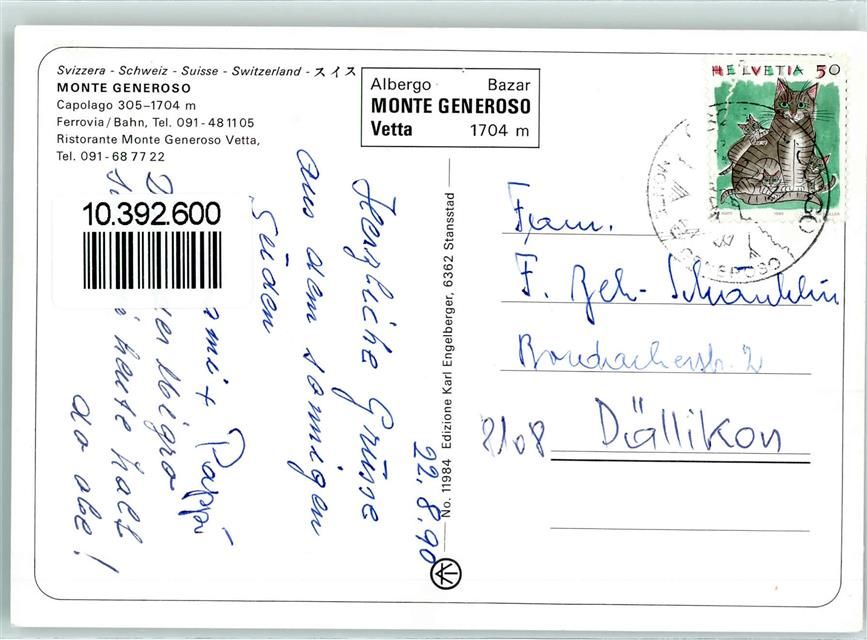 Svizzera - Schweiz - Suisse - Switzerland - スイス
MONTE GENEROSO
Capolago 305-1704 m
Ferrovia/Bahn, Tel. 091-48 11 05
Ristorante Monte Generoso Vetta,
Tel. 091-68 77 22
Albergo Bazar
MONTE GENEROSO
Vetta 1704 m
HELVETIA 50
10.392.600
22.8.90
Herzliche Grüsse
aus dem sonnigen
Süden
+ Pappi
Migro
heute halt
do abe!
No. 11984 Edizione Karl Engelberger, 6362 Stansstad
Fam.
F.
2
8108 Dällikon